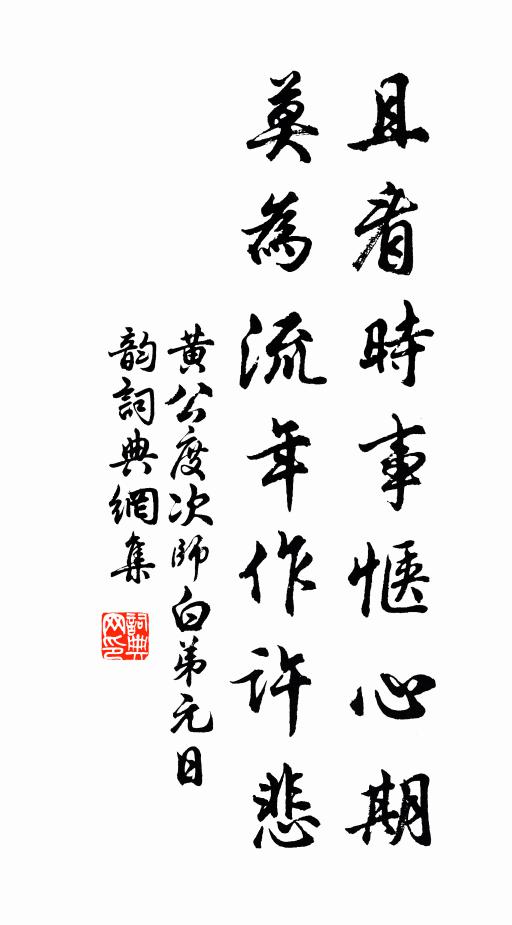 且看時事愜心期
莫為流年作許悲
黄公度次師白弟元日
韵詞典網集
詞典
网印